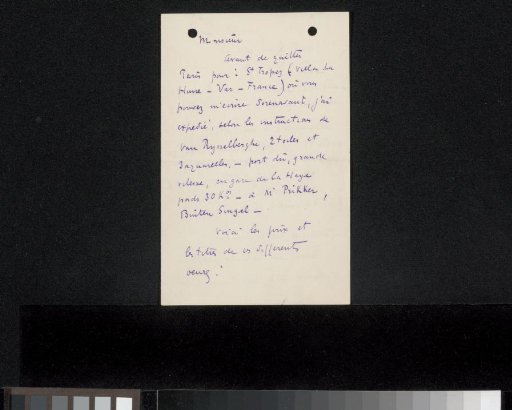 Monsieur
Avant de quitter
Paris pour : St Tropez (Villa La
Hune - Var - France) où vous
pouvez m'écrire dorénavant, j'ai
expédié, selon les instructions de
Van Rysselberghe, 2 toiles et
3 aquarelles, - port dû, grande
vitesse, en gare de La Haye
poids 30 Kos - à Mr Prikker,
Buiten Singel -
Voici les prix et
les titres de ces différents
: